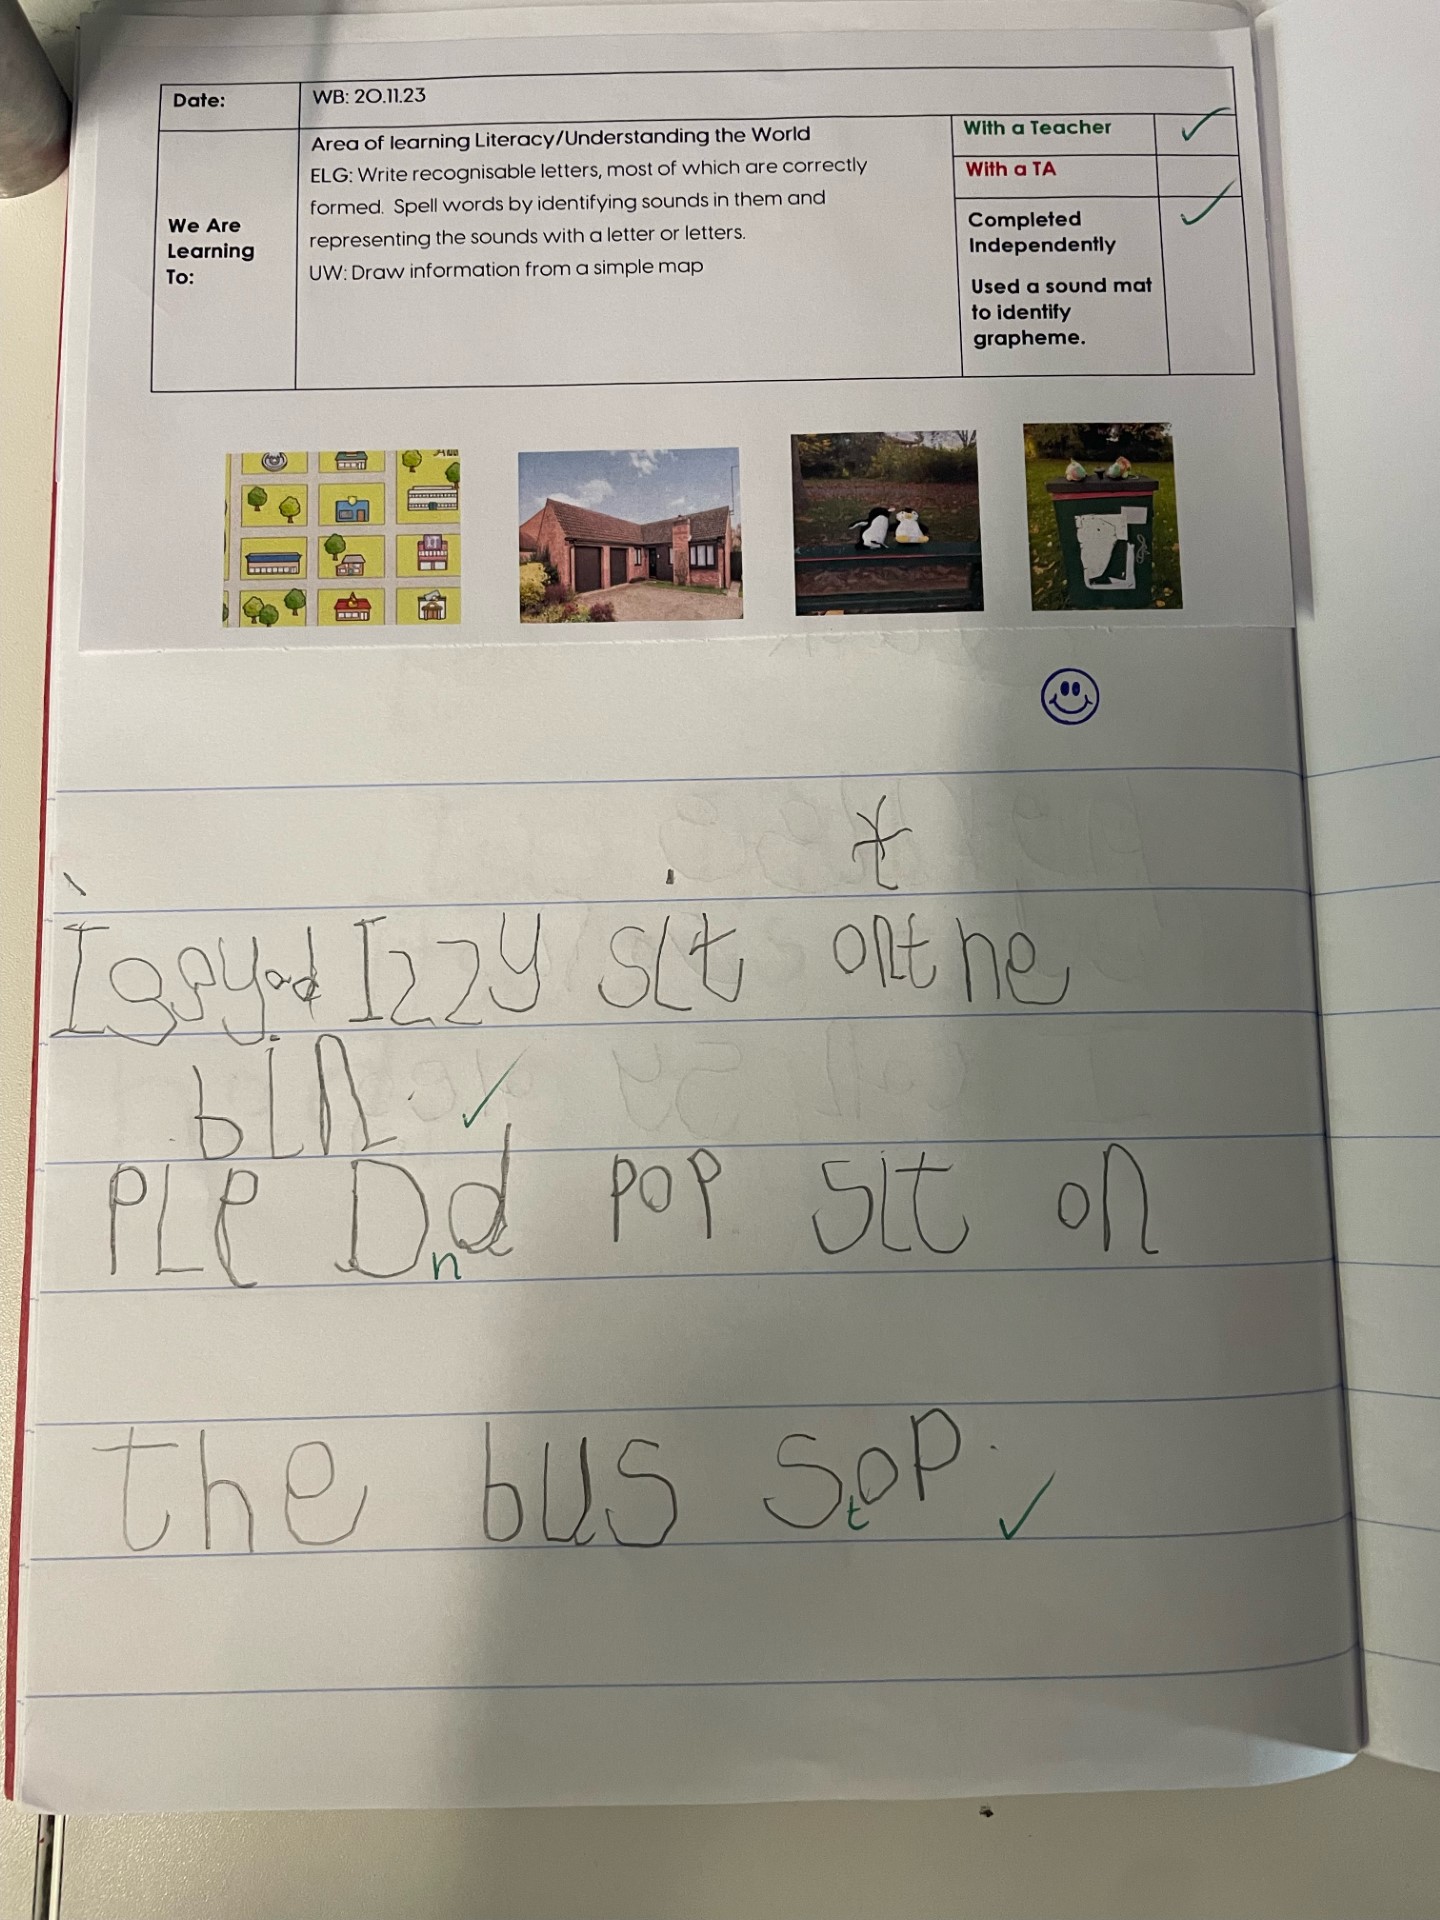 Date:
WB: 20.11.23
We Are
Learning
To:
Area of learning Literacy/Understanding the World
ELG: Write recognisable letters, most of which are correctly
formed. Spell words by identifying sounds in them and
representing the sounds with a letter or letters.
UW: Draw information from a simple map
With a Teacher ✓
With a TA
Completed
Independently ✓
Used a sound mat
to identify
grapheme.
t
Iggy ad Izzy sit on the
bin. ✓
PLP Dnd pop sit on
the bus stop. ✓